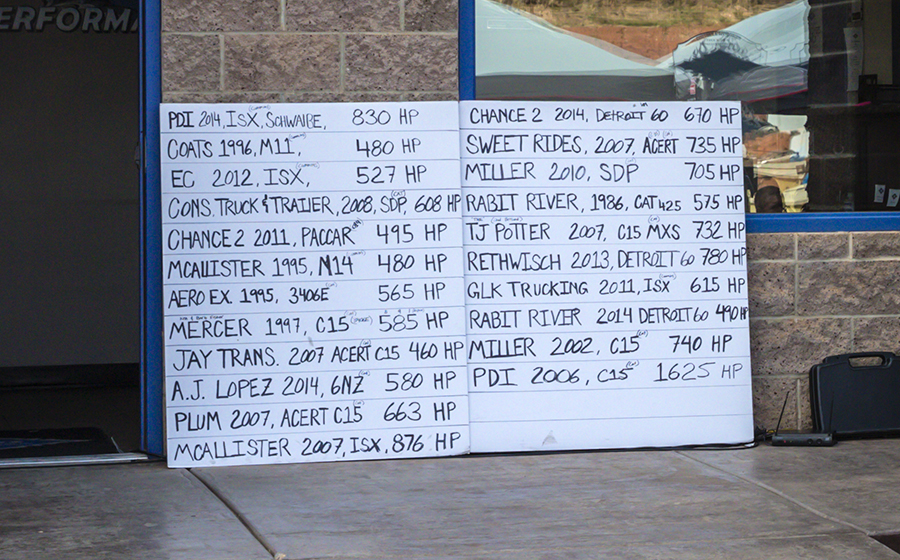 ERFORMA
PDI 2014, ISX, SCHWAIBE, 830 HP
COATS 1996, M11, 480 HP
EC 2012, ISX, 527 HP
CONS. TRUCK & TRAILER, 2008, SDP, 608 HP
CHANCE 2 2011, PACCAR 495 HP
MCALLISTER 1995, N14 480 HP
AERO EX. 1995, 3406E 565 HP
MERCER 1997, C15 585 HP
JAY TRANS. 2007 ACERT C15 460 HP
A.J. LOPEZ 2014, 6NZ 580 HP
PLUM 2007, ACERT C15 663 HP
MCALLISTER 2007, ISX, 876 HP
CHANCE 2 2014, DETROIT 60 670 HP
SWEET RIDES, 2007, ACERT 735 HP
MILLER 2010, SDP 705 HP
RABIT RIVER, 1986, CAT 425 575 HP
TJ POTTER 2007, C15 MXS 732 HP
RETHWISCH 2013, DETROIT 60 780 HP
GLK TRUCKING 2011, ISX 615 HP
RABIT RIVER 2014 DETROIT 60 490 HP
MILLER 2002, C15 740 HP
PDI 2006, C15 1625 HP